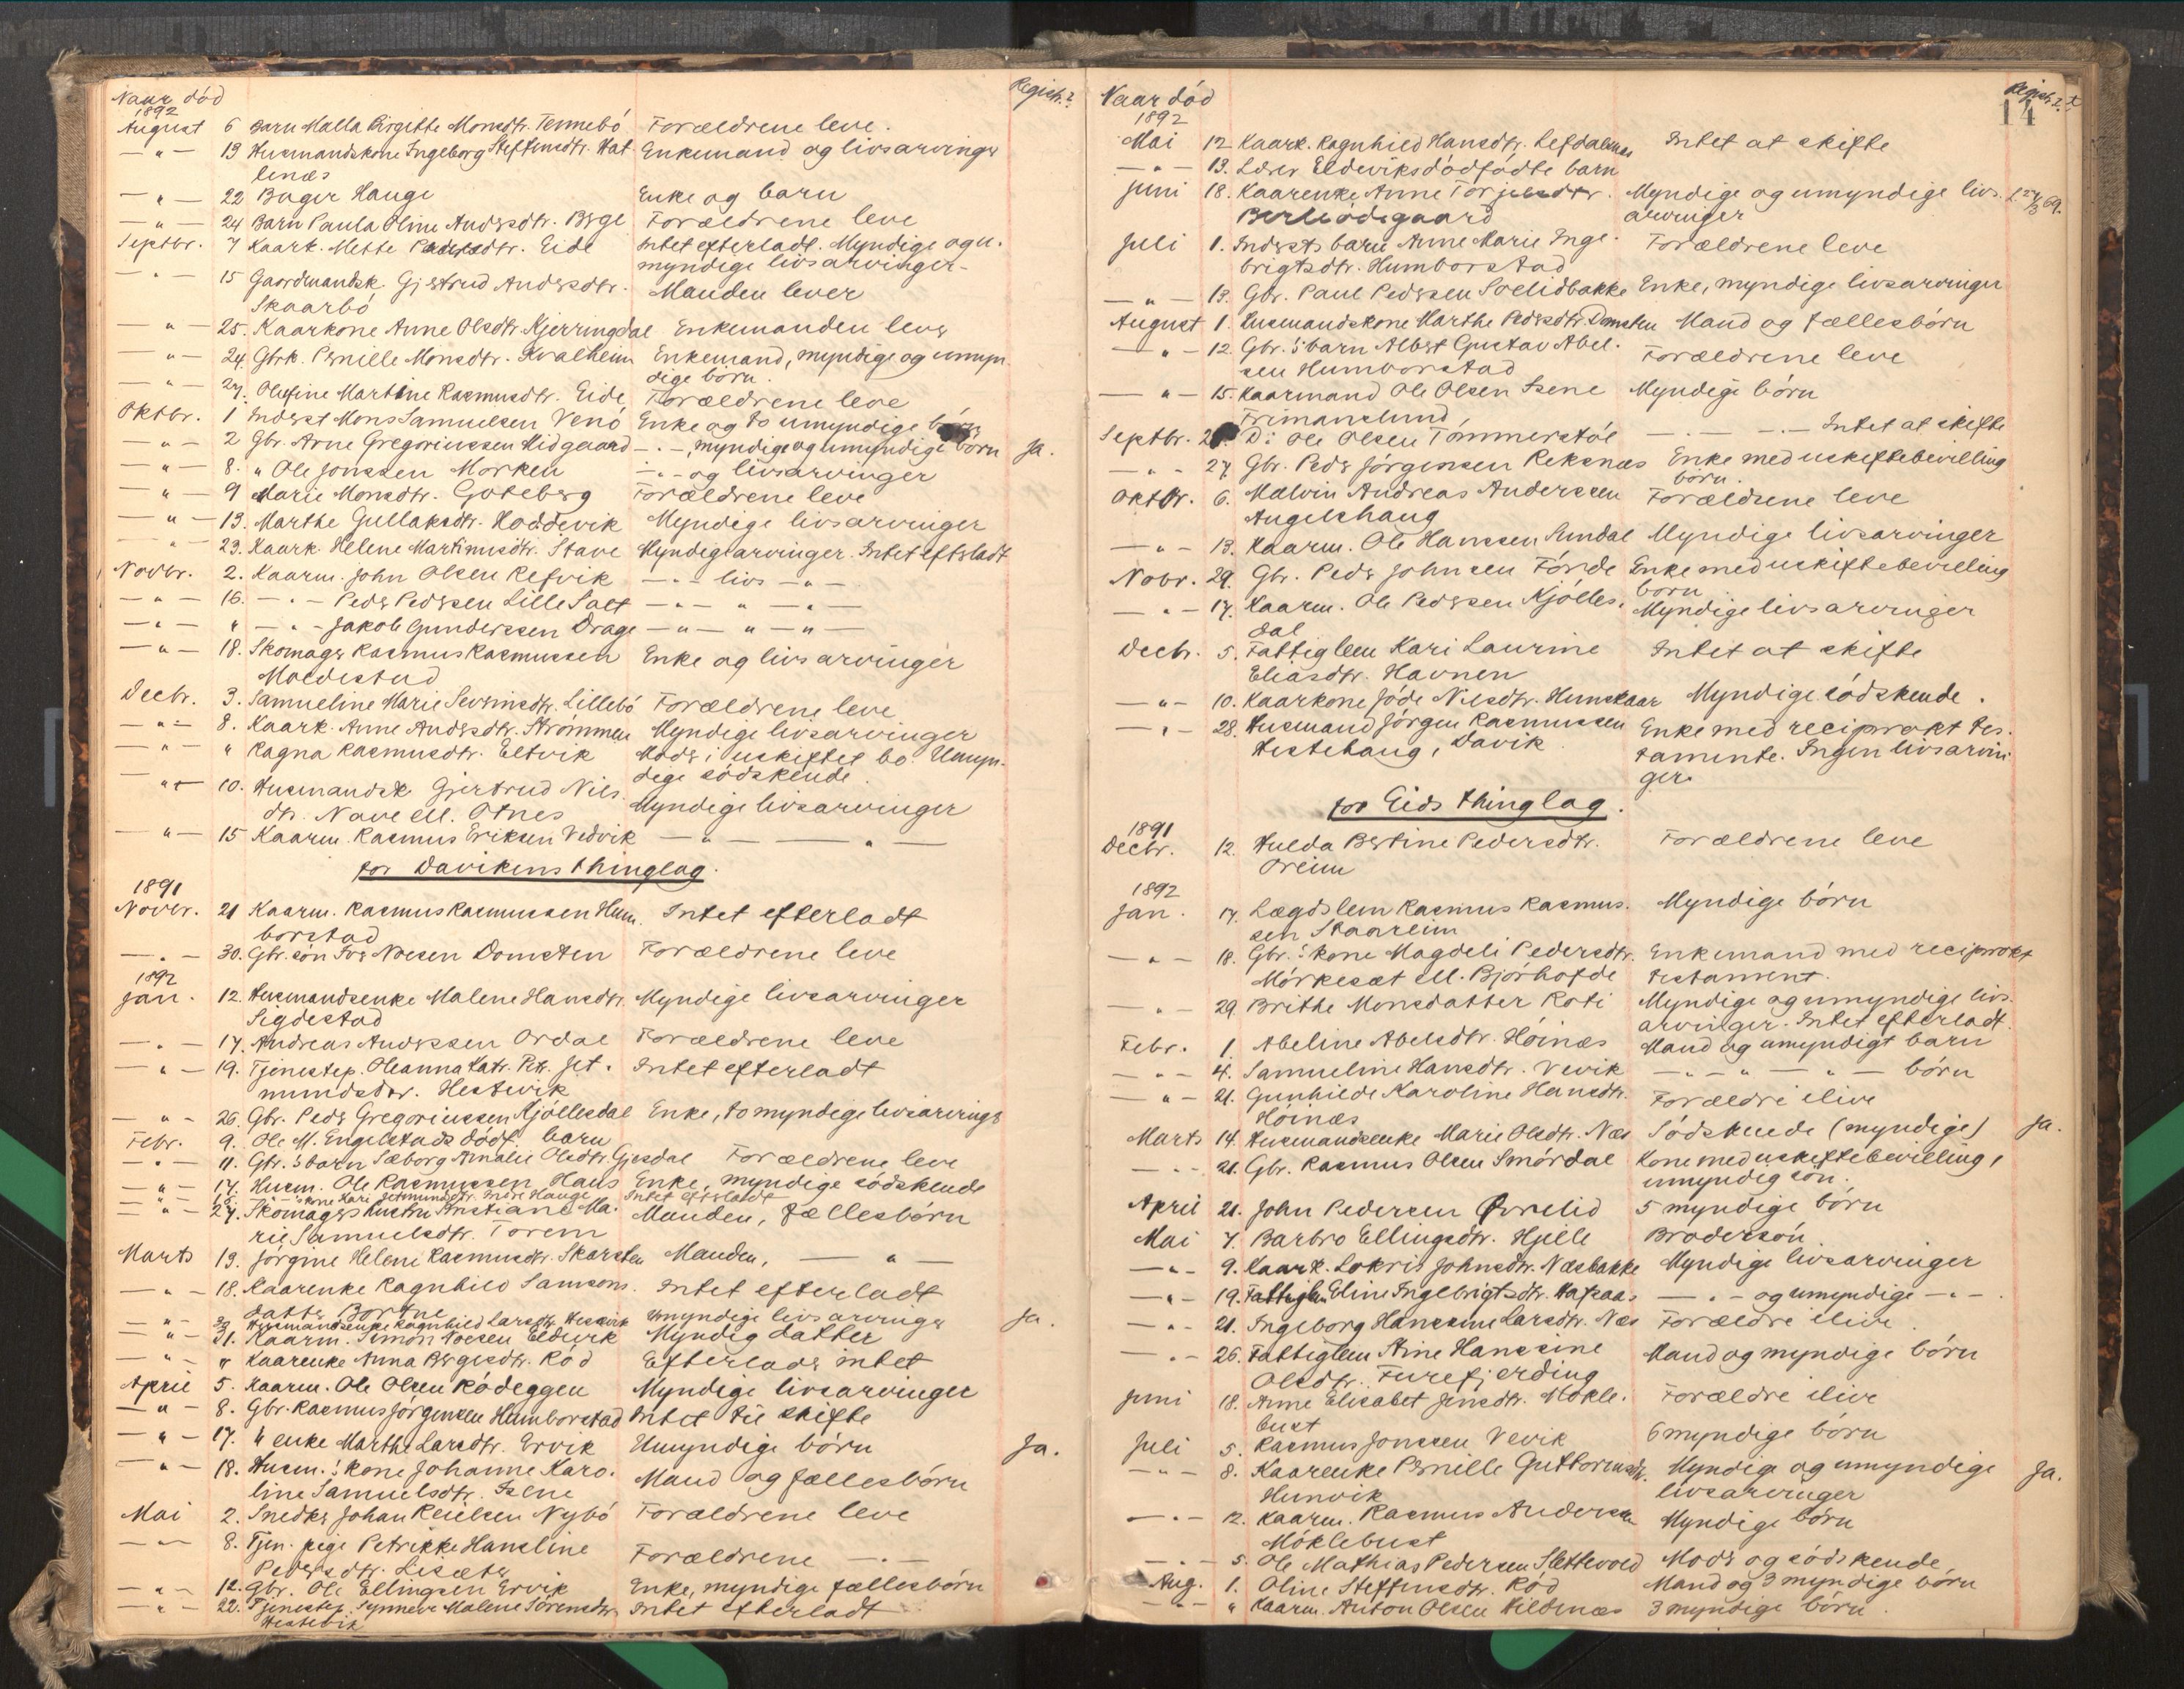 Naar död
Registr.?
1892
August 6 Barn Malla Birgitte Monsdtr. Tennebö Forældrene leve.
— " — 13 Husmandskone Ingeborg Steffensdtr. Hat- Enkemand og livsarvinger
lenæs
— " — 22 Bager Hauge Enke og barn
— " — 24 Barn Paula Oline Andersdtr. Berge Forældrene leve
Septbr. 7 Kaark. Mette Paulsdtr. Eide Intet efterladt. Myndige og u-
myndige livsarvinger.
— " — 15 Gaardmandsk. Gjertrud Andersdtr. Manden lever
Skaarbö
— " — 25. Kaarkone Anne Olsdtr. Kjerringdal Enkemanden lever
— " — 24. Gbrk. Pernille Monsdtr. Kvalheim Enkemand, myndige og umyn-
dige börn.
— " — 27. Olufine Martine Rasmusdtr. Eide Forældrene leve
Oktbr. 1 Inderst Mons Samuelsen Venö Enke og to umyndige börn
— " — 2 Gbr. Arne Gregoriussen Midgaard — " —, myndige og umyndige börn Ja.
— " — 8. " Ole Jonssen Morken — " — og livsarvinger
— " — 9 Marie Monsdtr. Goteberg Forældrene leve
— " — 13. Marthe Gullaksdtr. Hoddevik Myndige livsarvinger
— " — 23. Kaark. Helene Martinusdtr. Stave Myndige arvinger. Intet efterladt
Novbr. 2. Kaarm. John Olsen Refvik — " — livs — " —
— " — 16. — " — Peder Pedersen Lille Salt — " — " — " —
— " — " — " — Jakob Gunderssen Drage — " — " — " —
— " — 18. Skomager Rasmus Rasmussen Enke og livsarvinger
Moldestad
Decbr. 3. Samueline Marie Severinsdtr. Lillebö Forældrene leve
— " — 8. Kaark. Anne Andersdtr. Strömmen Myndige livsarvinger
— " — " Ragna Rasmusdtr. Eltvik Moder i uskiftet bo. Umyn-
dige södskende.
— " — 10. Husmandsk. Gjertrud Nils- Myndige livsarvinger
dtr. Nave ell. Otnes
— " — 15 Kaarm. Rasmus Eriksen Vedvik — " — — " —
for Davikens thinglag.
1891
Novbr. 21 Kaarm. Rasmus Rasmussen Hum- Intet efterladt
borstad
— " — 30. Gbr. sön Iver Noesen Domsten Forældrene leve
1892
Jan. 12. Husmandsenke Malene Hansdtr. Myndige livsarvinger
Sigdestad
— " — 17. Andreas Anderssen Ordal Forældrene leve
— " — 19. Tjenestep. Oleanna Katr. Petr. Jet- Intet efterladt
mundsdtr. Hestevik
— " — 26. Gbr. Peder Gregoriussen Kjöllesdal Enke, to myndige livsarvinger
Febr. 9. Ole M. Engelstads dödf. barn
— " — 11. Gbr.s barn Sæborg Amalie Olsdtr. Gjesdal Forældrene leve
— " — 17. Husm. Ole Rasmussen Haus Enke, myndige södskende
— " — 18. — " — kone Kari Jetmundsdtr. Indre Hauge Intet efterladt
— " — 27. Skomagers hustru Kristiane Ma- Manden, fællesbörn
rie Samuelsdtr. Torem
Marts 13. Jörgine Helene Rasmusdtr. Skarsten Manden, — " —
— " — 18. Kaarenke Ragnhild Samsons- Intet efterladt
datter Bortne
— " — Husmandsenke Ragnhild Larsdtr. Hessvik Umyndige livsarvinger Ja.
— " — 31. Kaarm. Simon Noesen Eldevik Myndig datter
— " — " Kaarenke Anna Bergesdtr. Röd Efterlader intet
April 5. Kaarm. Ole Olsen Rödeggen Myndige livsarvinger
— " — 8. Gbr. Rasmus Jörgensen Humborstad Intet til skifte
— " — 17. " enke Marthe Larsdtr. Ervik Umyndige börn Ja.
— " — 18. Husm.s kone Johanne Karo- Mand og fællesbörn
line Samuelsdtr. Isene
Mai 2. Snedker Johan Reielsen Nybö Forældrene leve
— " — 8. Tjen. pige Petrikke Hanseline Forældrene — " —
Pedersdtr. Lisæter
— " — 12. Gbr. Ole Ellingsen Ervik Enke, myndige fællesbörn
— " — 22. Tjenestep. Synneve Malene Sörensdtr. Intet efterladt
Hestevik
Naar död
Registr.?
14
1892
Mai 12 Kaark. Ragnhild Hansdtr. Lefdalsnes Intet at skifte
— " — 13. Lærer Eldeviks dödfödte barn
Juni 18. Kaarenke Anne Torjusdtr. Myndige og umyndige livs-
Berleödegaard arvinger
Juli 1. Indersts barn Anne Marie Inge- Forældrene leve
brigtsdtr. Humborstad
— " — 13. Gbr. Paul Pedersen Svelidbakke Enke, myndige livsarvinger
August 1. Husmandskone Marthe Pedersdtr. Domsten Mand og fællesbörn
— " — 12. Gbr.s barn Albert Gustav Abel- Forældrene leve
sen Humborstad
— " — 15. Kaarmand Ole Olsen Isene Myndige börn
Frimanslund,
Septbr. 2 Do Ole Olsen Tömmerstöl — " — — " — Intet at skifte
— " — 27 Gbr. Peder Jörgensen Reksnæs Enke med uskiftebevilling
börn.
Oktbr. 6. Malvin Andreas Anderssen Forældrene leve
Angelshaug
— " — 13. Kaarm. Ole Hanssen Sundal Myndige livsarvinger
Nobr. 29. Gbr. Peder Johnsen Förde Enke med uskiftebevilling
börn
— " — 17. Kaarm. Ole Pedersen Kjölles- Myndige livsarvinger
dal
Decbr. 5. Fattiglem Kari Laurine Intet at skifte
Eliasdtr. Havnen
— " — 10. Kaarkone Jöde Nilsdtr. Hunskaar Myndige södskende.
— " — 28. Husmand Jörgen Rasmussen Enke med reciprokt tes-
Hestehaug, Davik tamente. Ingen livsarvin-
ger.
for Eids thinglag.
1891
Decbr. 12. Hulda Bertine Pedersdtr. Forældrene leve
Oreim
1892
Jan. 17. Lægdslem Rasmus Rasmus- Myndige börn
sen Staareim
— " — 18. Gbr.s kone Magdeli Pedersdtr. Enkemand med reciprokt
Mörkesæt ell. Bjorhofde testament.
— " — 29. Brithe Monsdatter Roti Myndige og umyndige livs-
arvinger. Intet efterladt.
Febr. 1. Abeline Abelsdtr. Höinæs Mand og umyndigt barn
— " — 4. Samueline Hansdtr. Vevik — " — " — " — börn
— " — 21. Gunhilde Karoline Hansdtr. Forældre ilive
Höinæs
Marts 14. Husmandsenke Marie Olsdtr. Næs Södskende (myndige) Ja.
— " — 21. Gbr. Rasmus Olsen Smördal Kone med uskiftebevilling,
umyndig sön.
April 21. John Pedersen Övrelid 5 myndige börn
Mai 7. Barbro Ellingsdtr. Hjelle Brodersön
— " — 9. Kaark. Lokris Johnsdtr. Næsbakke Myndige livsarvinger
— " — 19. Fattiglem Eline Ingebrigtsdtr. Hafsaas — " — og umyndige — " —
— " — 21. Ingeborg Hanssine Larsdtr. Næs Forældre ilive.
— " — 26. Fattiglem Stine Hanssine Mand og myndige börn
Olsdtr. Furefjerding
Juni 18. Anne Elisabet Jensdtr. Mökle- Forældre ilive
bust
Juli 5. Rasmus Jonssen Vevik 6 myndige börn
— " — 8. Kaarenke Pernille Guttormsdtr. Myndige og umyndige Ja.
Hunvik livsarvinger
— " — 12. Kaarm. Rasmus Andersen Myndige börn
Möklebust
— " — 5. Ole Mathias Pedersen Slettevold Moder og södskende
Aug. 1. Oline Steffensdtr. Röd Mand og 3 myndige börn
— " — " Kaarm. Anton Olsen Hildenæs 3 myndige börn.